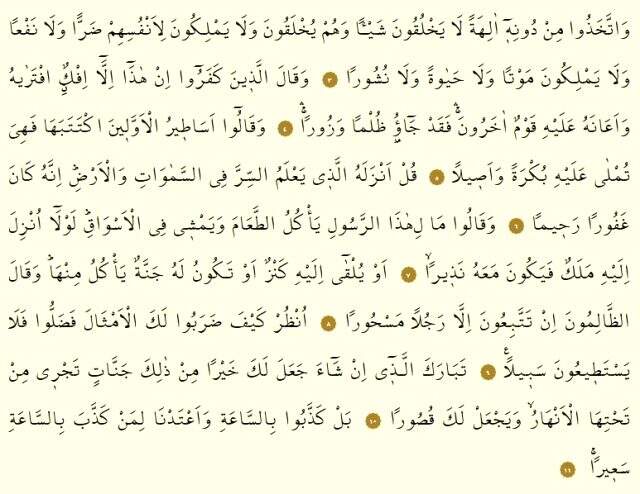 وَاتَّخَذُوا مِنْ دُونِهٖٓ اٰلِهَةً لَا يَخْلُقُونَ شَيْـًٔا وَهُمْ يُخْلَقُونَ وَلَا يَمْلِكُونَ لِاَنْفُسِهِمْ ضَرًّا وَلَا نَفْعًا
وَلَا يَمْلِكُونَ مَوْتًا وَلَا حَيٰوةً وَلَا نُشُورًا ﴿٣﴾ وَقَالَ الَّذٖينَ كَفَرُٓوا اِنْ هٰذَٓا اِلَّٓا اِفْكٌۨ افْتَرٰيهُ
وَاَعَانَهُ عَلَيْهِ قَوْمٌ اٰخَرُونَۚۛ فَقَدْ جَٓاؤُ۫ ظُلْمًا وَزُورًاۚۛ ﴿٤﴾ وَقَالُٓوا اَسَاطٖيرُ الْاَوَّلٖينَ اكْتَتَبَهَا فَهِىَ
تُمْلٰى عَلَيْهِ بُكْرَةً وَاَصٖيلًا ﴿٥﴾ قُلْ اَنْزَلَهُ الَّذٖى يَعْلَمُ السِّرَّ فِى السَّمٰوَاتِ وَالْاَرْضِؕ اِنَّهُ كَانَ
غَفُورًا رَحٖيمًا ﴿٦﴾ وَقَالُوا مَا لِهٰذَا الرَّسُولِ يَاْكُلُ الطَّعَامَ وَيَمْشٖى فِى الْاَسْوَاقِؕ لَوْلَٓا اُنْزِلَ
اِلَيْهِ مَلَكٌ فَيَكُونَ مَعَهُ نَذٖيرًاۙ ﴿٧﴾ اَوْ يُلْقٰٓى اِلَيْهِ كَنْزٌ اَوْ تَكُونُ لَهُ جَنَّةٌ يَاْكُلُ مِنْهَاؕ وَقَالَ
الظَّالِمُونَ اِنْ تَتَّبِعُونَ اِلَّا رَجُلًا مَسْحُورًا ﴿٨﴾ اُنْظُرْ كَيْفَ ضَرَبُوا لَكَ الْاَمْثَالَ فَضَلُّوا فَلَا
يَسْتَطٖيعُونَ سَبٖيلًاࣖ ﴿٩﴾ تَبَارَكَ الَّذٖٓى اِنْ شَٓاءَ جَعَلَ لَكَ خَيْرًا مِنْ ذٰلِكَ جَنَّاتٍ تَجْرٖى مِنْ
تَحْتِهَا الْاَنْهَارُۙ وَيَجْعَلْ لَكَ قُصُورًا ﴿١٠﴾ بَلْ كَذَّبُوا بِالسَّاعَةِ وَاَعْتَدْنَا لِمَنْ كَذَّبَ بِالسَّاعَةِ
سَعٖيرًاۚ ﴿١١﴾